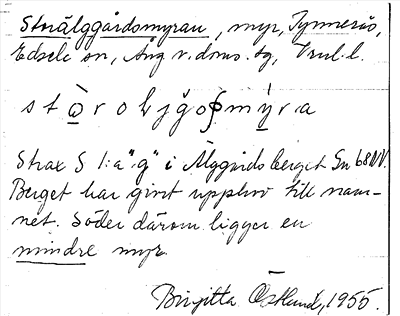 Storälggårdsmyran, myr, Tynnerås,
Edsele sn, Ång v. doms. tg, Vnl. l.
Strax S 1:a "g" i Älggårdsberget Gn 68 NV.
Berget har givit upphov till nam-
net. Söder därom ligger en
mindre myr.
Birgitta Östlund, 1955.